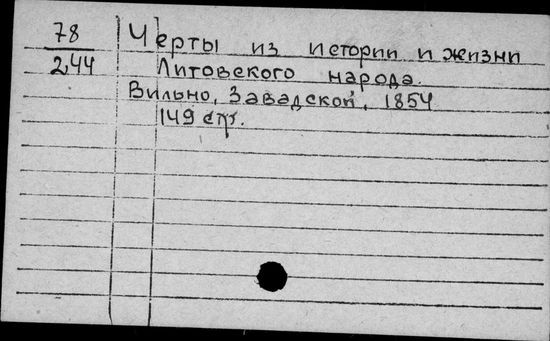 78
244
Черты из истории и жизни
Литовского народа.
Вильно, Завадской, 1854
149 стр.